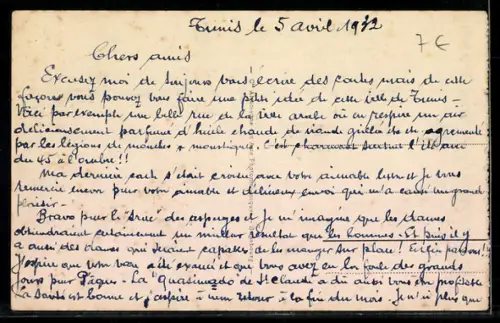 Tunis le 5 avril 1932
7€
Chers amis
Excusez moi de toujours vous écrire des cartes mais de cette
façon vous pouvez vous faire une petite idée de cette ville de Tunis -
Voici par exemple une belle rue de la ville arabe où on respire un air
délicieusement parfumé d'huile chaude de viande grillée etc etc agrémenté
par les légions de mouches + moustiques. C'est charmant surtout l'été avec
du 45 à l'ombre!!
Ma dernière carte s'était croisée avec votre aimable lettre et je vous
remercie encore pour votre aimable et délicieux envoi qui m'a causé un grand
plaisir -
Bravo pour le "truc" des asperges et je m'imagine que les dames
obtiendraient certainement un meilleur résultat que les hommes - Et puis il y
a aussi des dames qui seraient capables de les manger sur place! Enfin passons!
J'espère que votre a été et que vous avez eu la foule des grands
jours pour Pâques - La Quasimodo de St Claude a dû aussi vous être profitable
La santé est bonne et j'espère à mon retour à la fin du mois. Je n'ai plus que